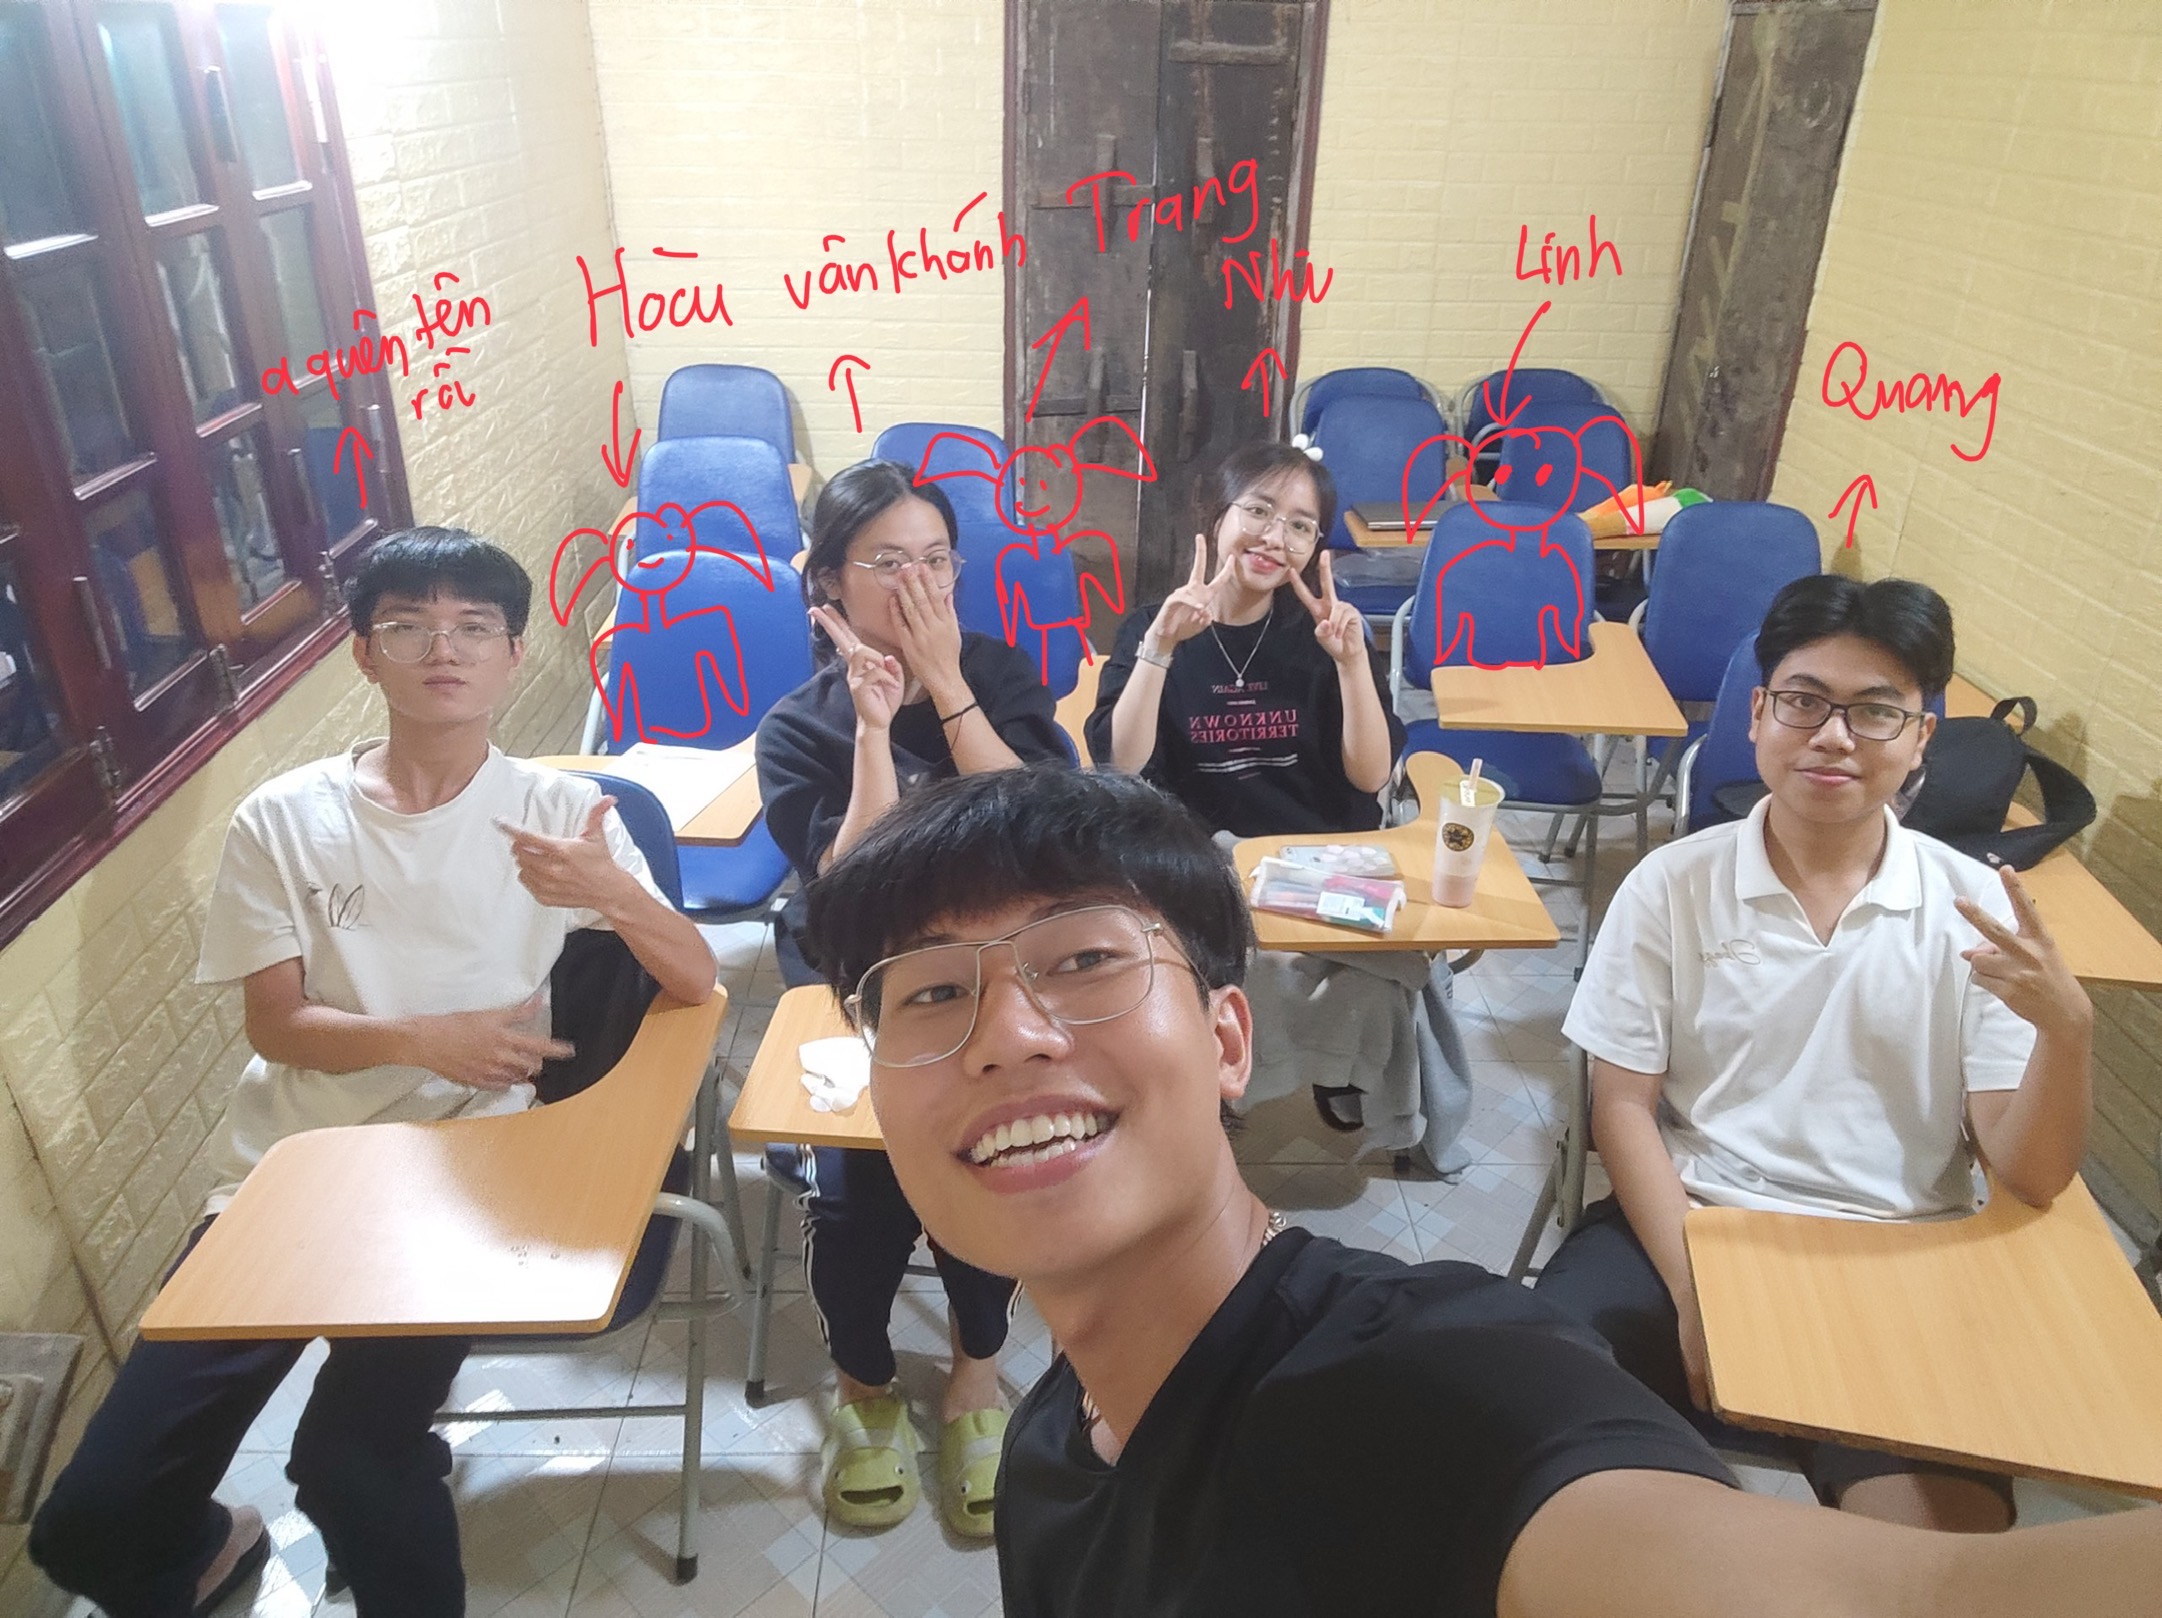 a quên tên
rồi
Hoàu
vân khánh
Trang
Nhi
Linh
Quang
LIVE AGAIN
UNKNOWN
TERRITORIES